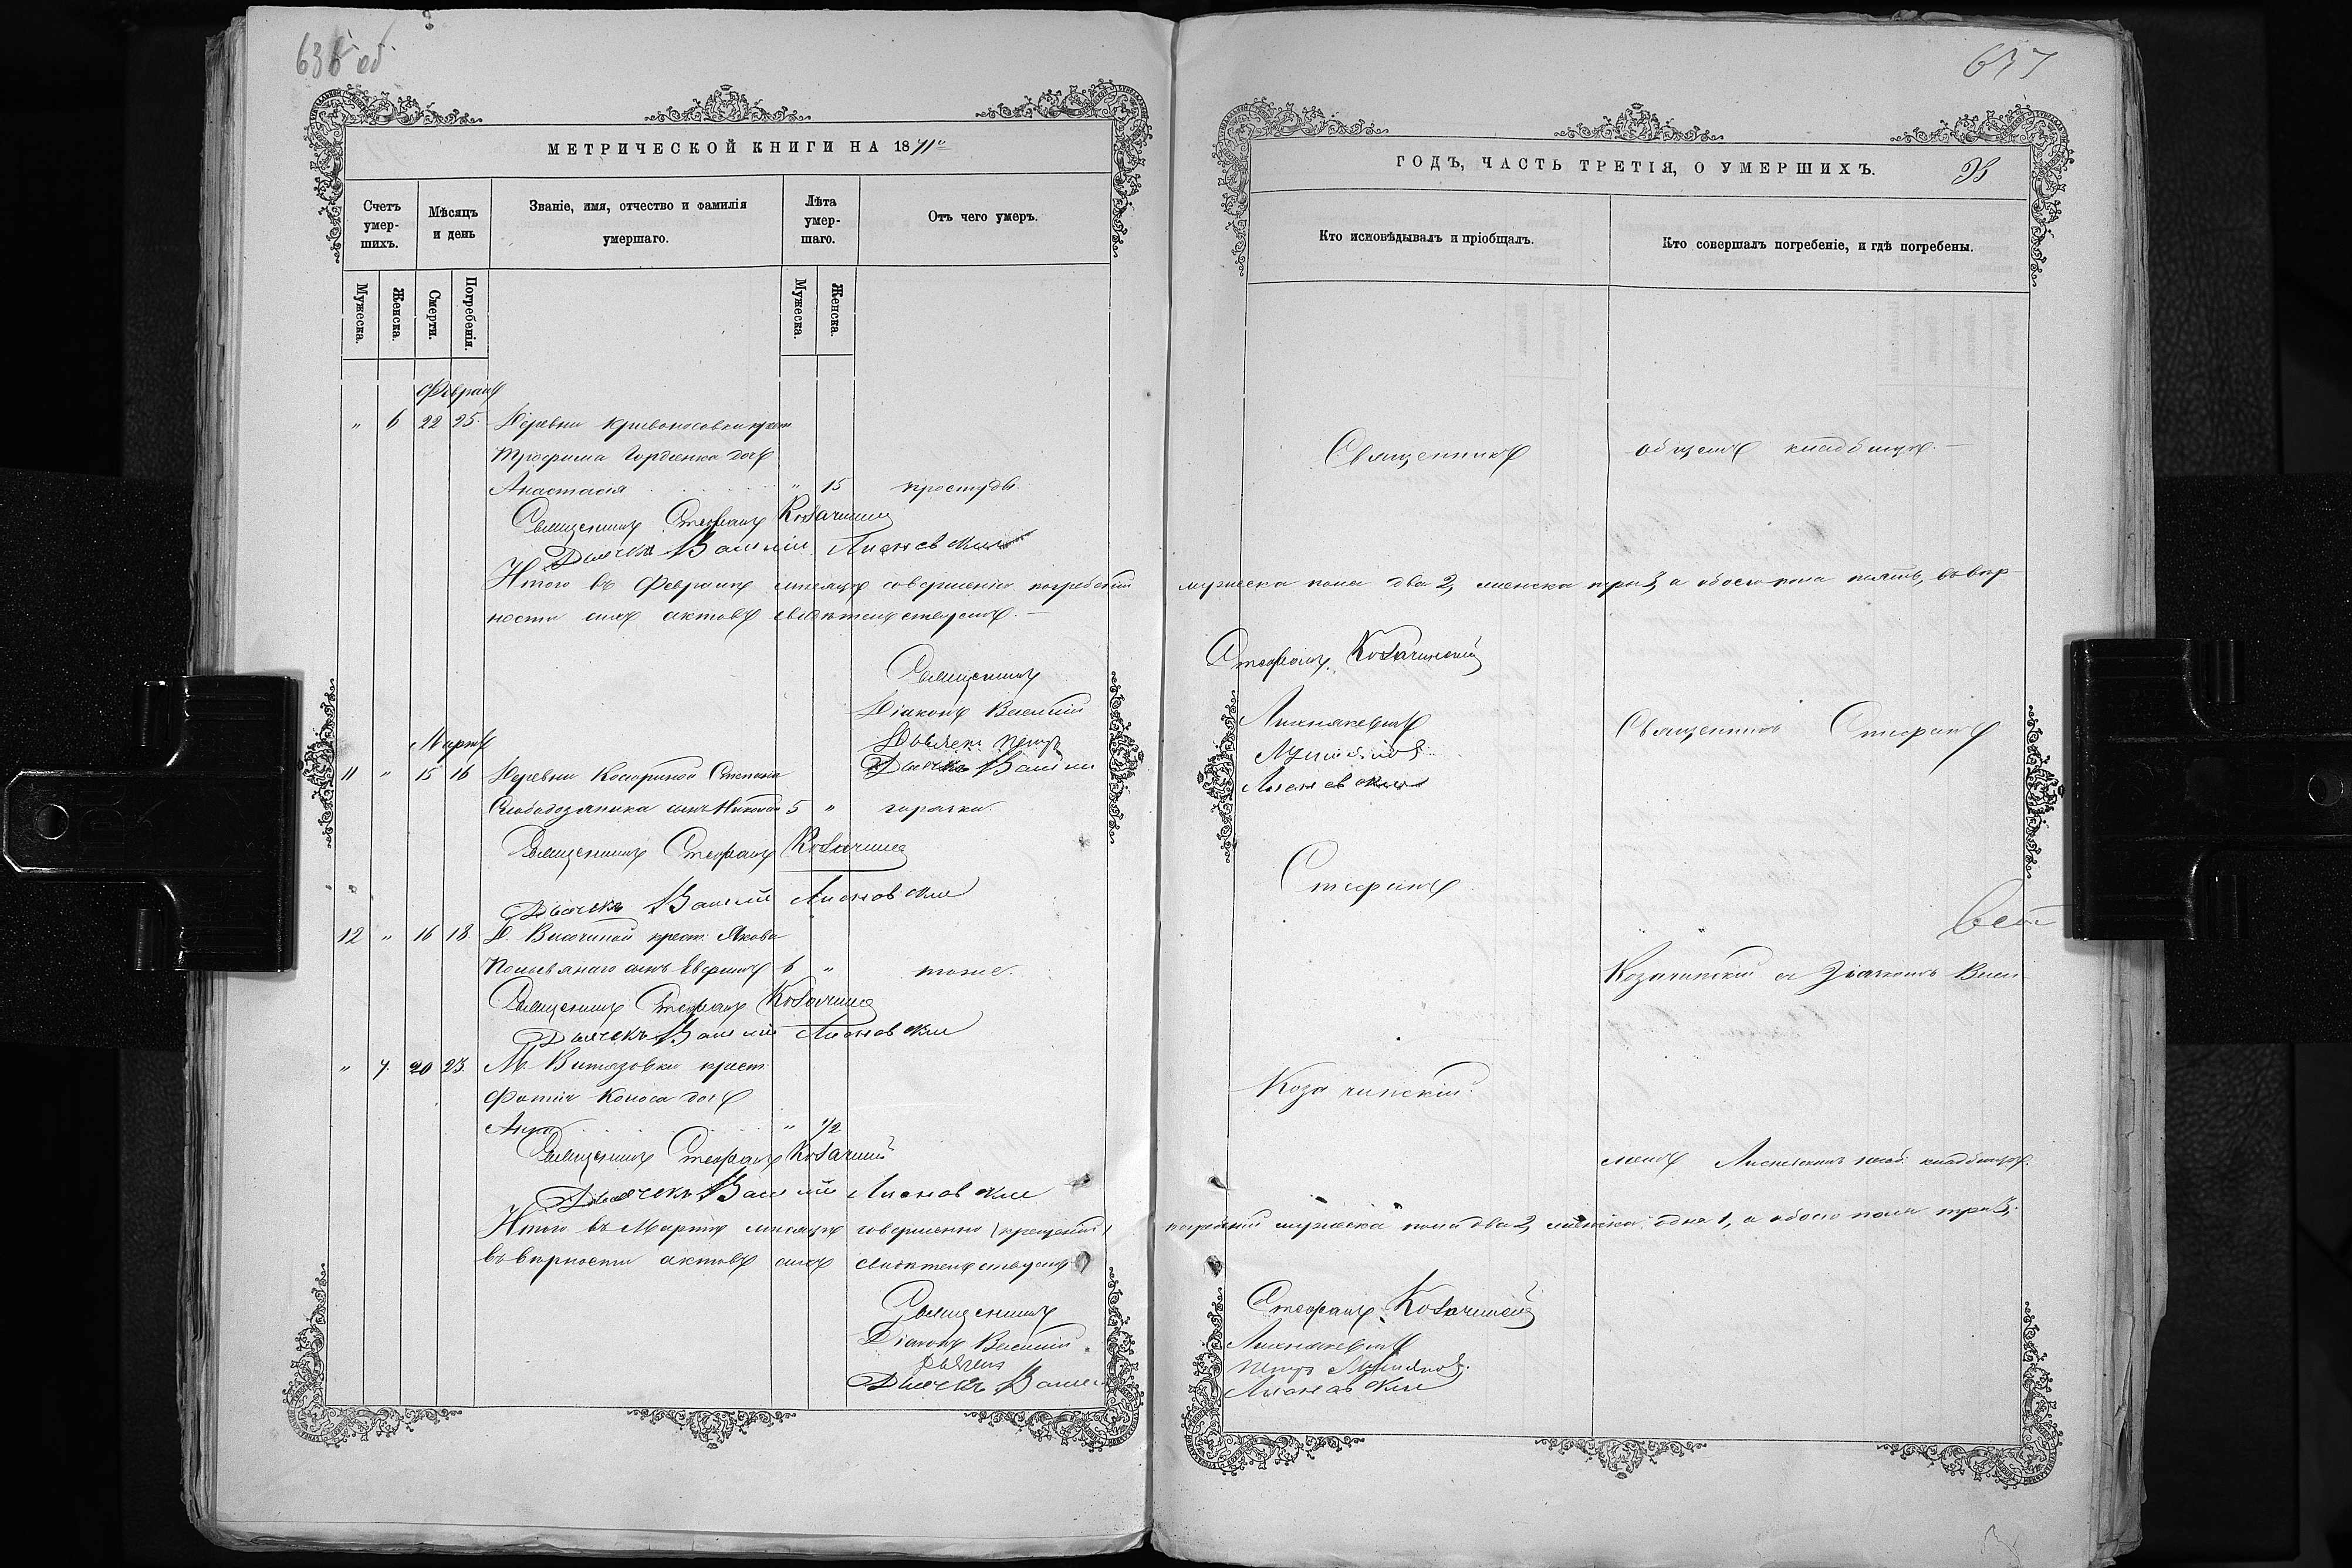 636 об.
МЕТРИЧЕСКОЙ КНИГИ НА 1871
Счетъ умер-шихъ.
Мѣсяцъ и день
Званіе, имя, отчество и фамилія умершаго.
Лѣта умер-шаго.
Отъ чего умеръ.
Мужеска.
Женска.
Смерти.
Погребенія.
Мужеска.
Женска.
Февраль
" 6 22 25 Деревни Кривоносовки крест
Трофима Гордіенка дочь
Анастасія " 15 простуды.
Священникъ Стефанъ Козачинскій
Дьячекъ Василій Лисневскій
Итого въ Февралѣ мѣсяцѣ совершенно погребеній
ности сихъ актовъ свидѣтельствуемъ.
Священникъ
Діаконъ Василій
Дьячекъ Петръ
Дьячекъ Василій
Мартъ
11 " 15 16 Деревни Степана
сынъ Николай 5 " горячки.
Священникъ Стефанъ Козачинскій
Дьячекъ Василій Лисневскій
12 " 16 18 Д. Височиной крест. Якова
сынъ Евфимъ 6 " тоже.
Священникъ Стефанъ Козачинскій
Дьячекъ Василій Лисневскій
" 7 20 23 М. Витязовки крест.
Фотія Коноса дочь
Анна " 1/2
Священникъ Стефанъ Козачинскій
Дьячекъ Василій Лисневскій
Итого въ Мартѣ мѣсяцѣ совершенно (крещеній)
въ вѣрности актовъ сихъ свидѣтельствуемъ
Священникъ
Діаконъ Василій
Дьячекъ
Дьячекъ Василій
637
ГОДЪ, ЧАСТЬ ТРЕТІЯ, О УМЕРШИХЪ.
Кто исповѣдывалъ и пріобщалъ.
Кто совершалъ погребеніе, и гдѣ погребены.
Священникъ
общемъ кладбищѣ.
мужеска пола два 2, женска три 3, а обоего пола пять, въ вѣр-
Стефанъ Козачинскій
Лисневскій
Священникъ Стефанъ
Стефанъ
Козачинскій съ Діакономъ Васи
Козачинскій
кладбищѣ.
погребеній мужеска пола два 2, женска одна 1, а обоего пола три 3,
Стефанъ Козачинскій
Петръ
Лисневскій